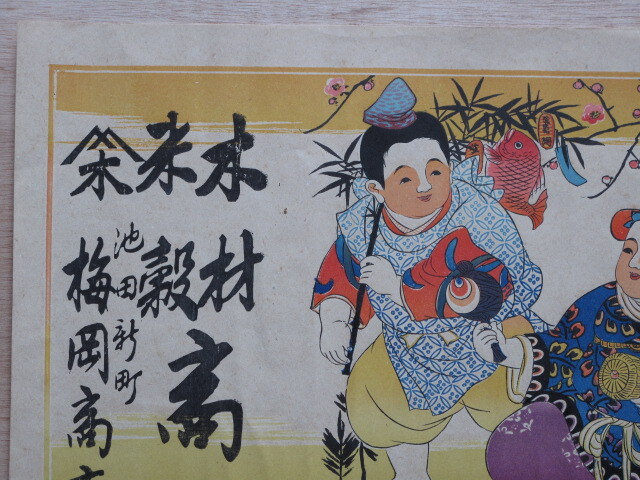 木材
米穀
商
池田新町
梅岡商